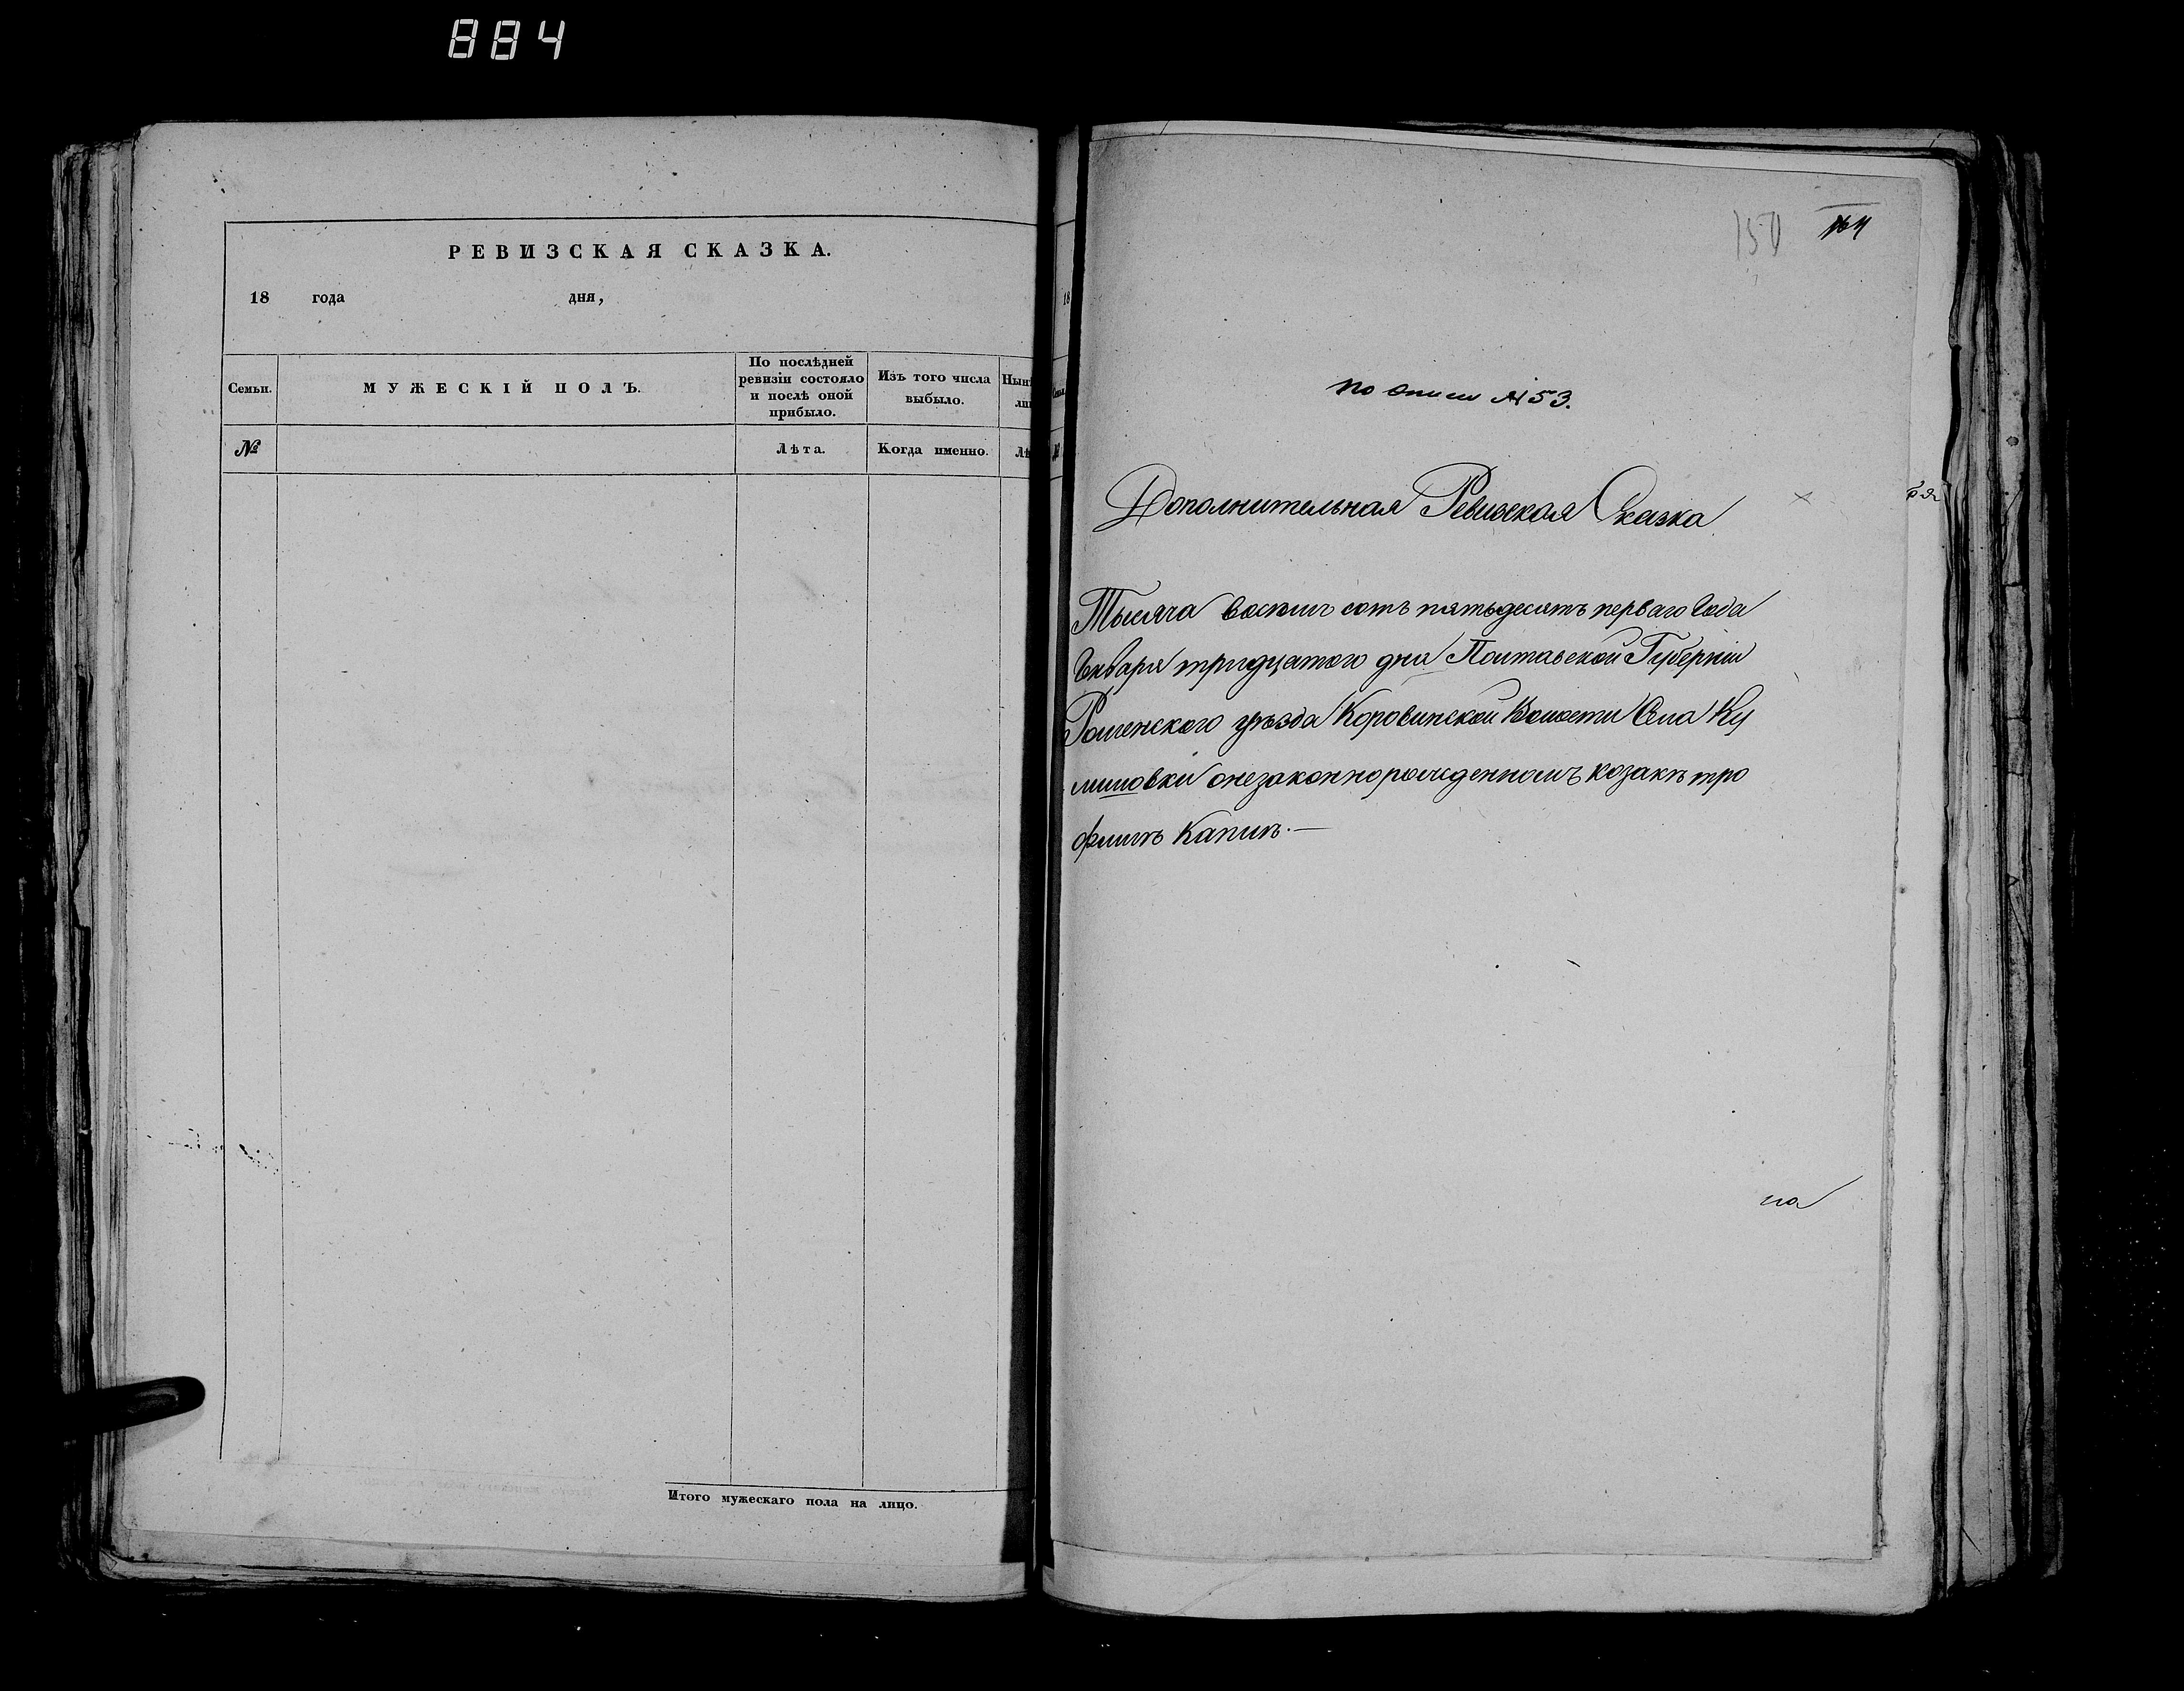 884
РЕВИЗСКАЯ СКАЗКА.
18 года дня,
Семьи.
МУЖЕСКІЙ ПОЛЪ.
По послѣдней
ревизіи состояло
и послѣ оной
прибыло.
Изъ того числа
выбыло.
№
Лѣта.
Когда именно.
Итого мужескаго пола на лицо.
150
по описи №53.
Дополнительная Ревизская Сказка.
Тысяча восемь сотъ пятьдесятъ перваго Года
Января тридцатого дня Полтавской Губерніи
Роменского уѣзда Коровинской Волости Села Ку
онезаконнорожденномъ козакѣ тро
фимѣ Капии.—